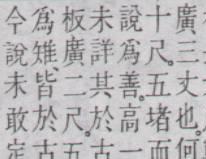 廣三丈也何
十尺。五堵而
說爲善。高一
未詳其於古
板廣二尺。五
爲雉、皆於古
今說未敢定